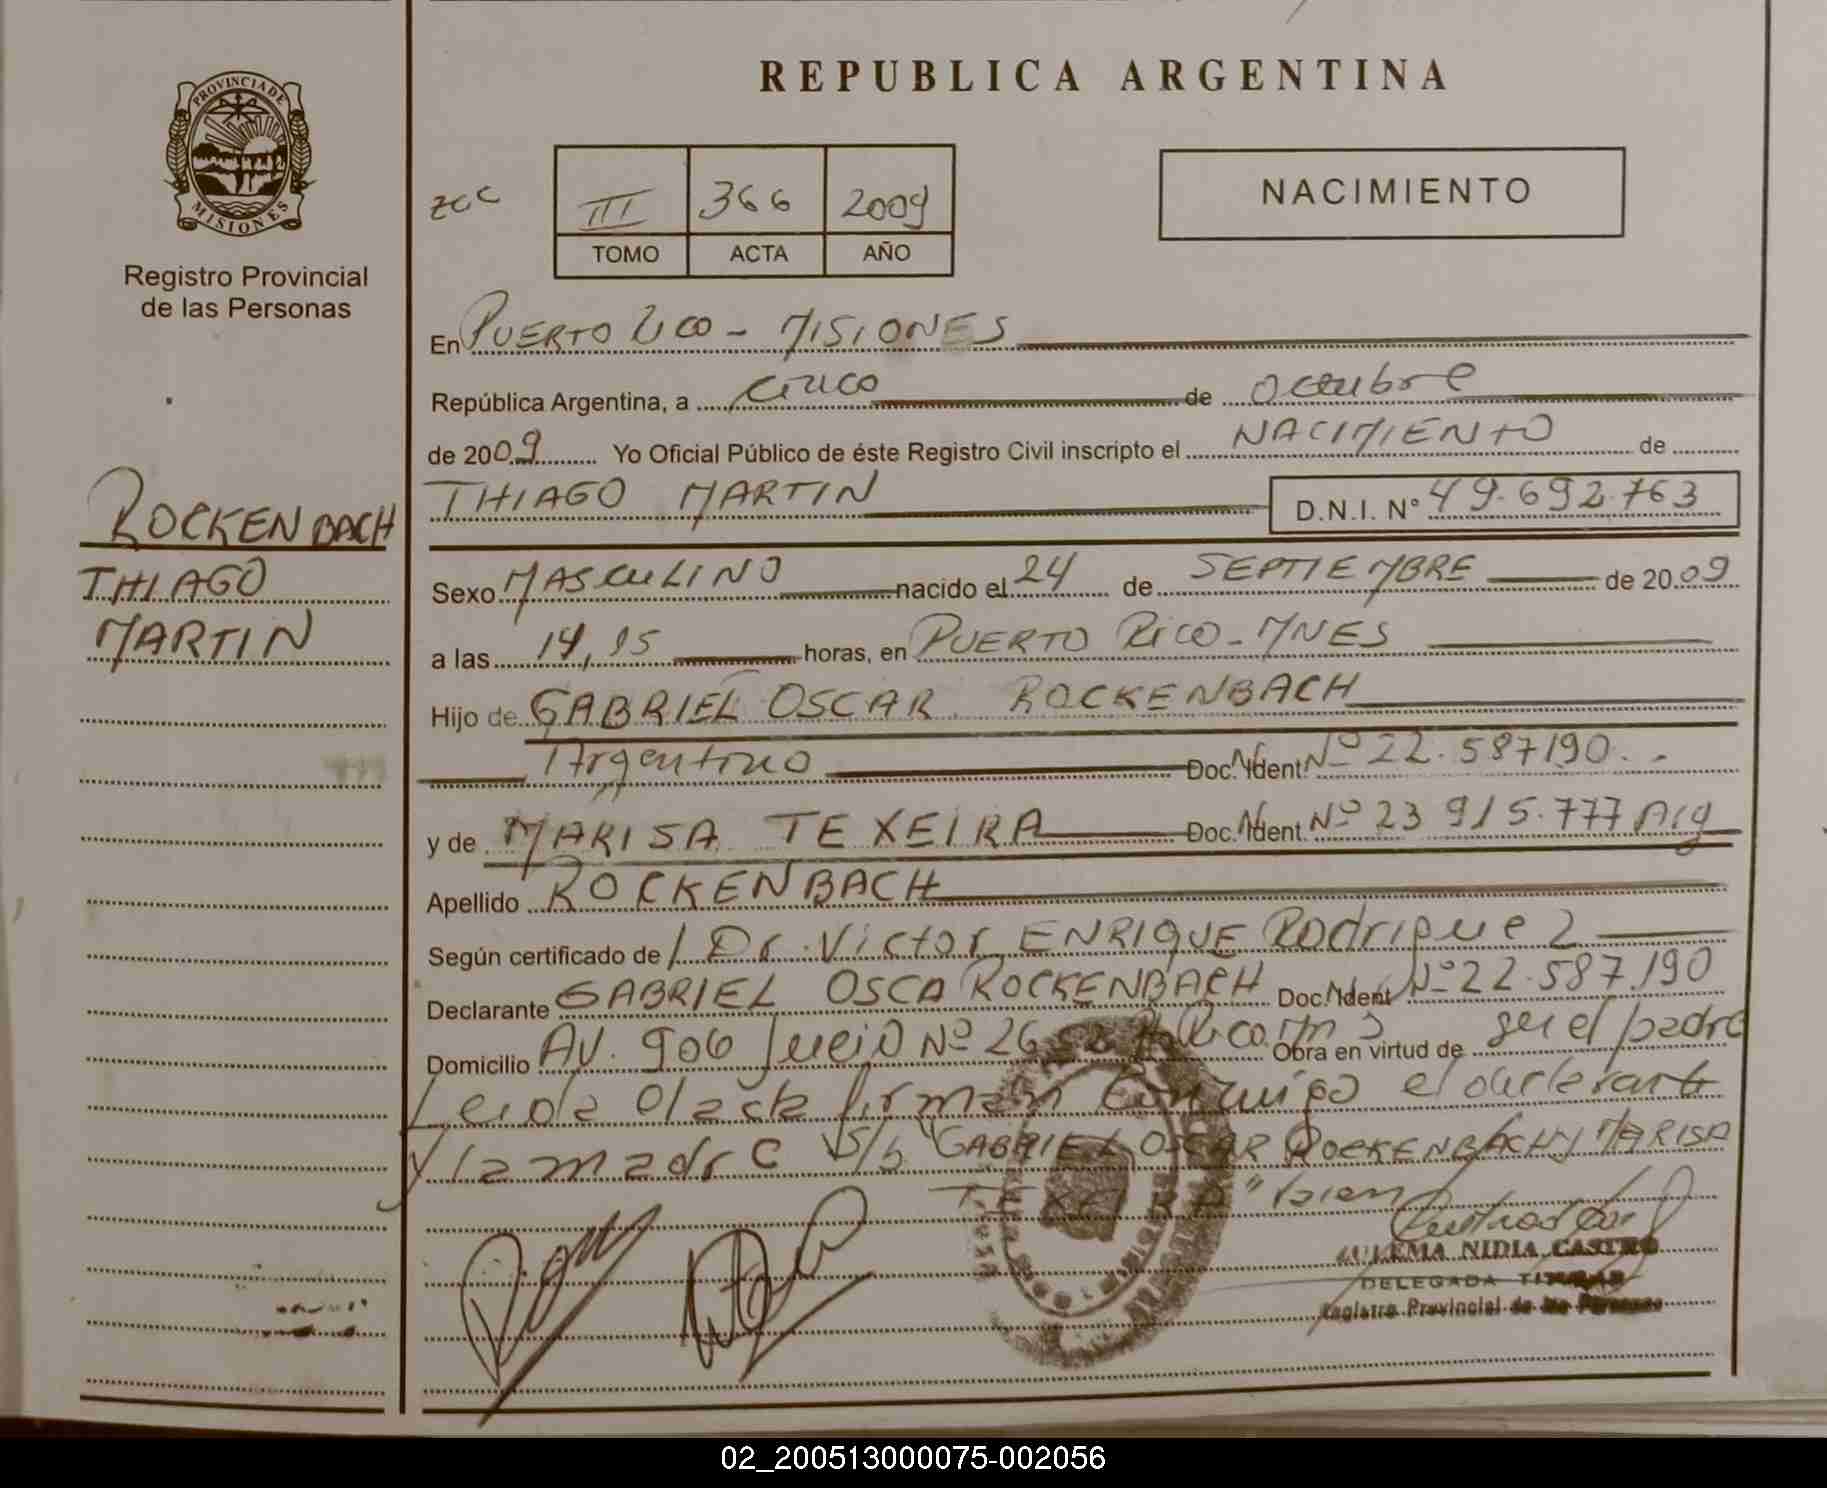 REPUBLICA ARGENTINA
PROVINCIA DE
MISIONES
Registro Provincial
de las Personas
III 366 2009
TOMO ACTA AÑO
NACIMIENTO
En PUERTO RICO - MISIONES
República Argentina, a cinco de octubre
de 2009 Yo Oficial Público de éste Registro Civil inscripto el NACIMIENTO de
THIAGO MARTIN D.N.I. N° 49.692.763
ROCKENBACH
THIAGO
MARTIN
Sexo MASCULINO nacido el 24 de SEPTIEMBRE de 2009
a las 14,15 horas, en PUERTO RICO - MNES
Hijo de GABRIEL OSCAR ROCKENBACH
Argentino Doc. Ident. Nº 22.587190
y de MARISA TEXEIRA Doc. Ident. Nº 23 915.777 Arg
Apellido ROCKENBACH
Según certificado de Dr. Victor ENRIQUE Rodriguez
Declarante GABRIEL OSCA ROCKENBACH Doc. Ident. Nº 22.587.190
Domicilio AV. 9 de Julio Nº Obra en virtud de ser el padre
Leida el acta firman conmigo el declarante
y la madre S/b "GABRIEL OSCAR ROCKENBACH y MARISA
TEXEIRA"
ZULEMA NIDIA CASTRO
DELEGADA TITULAR
Registro Provincial de las Personas
02_200513000075-002056